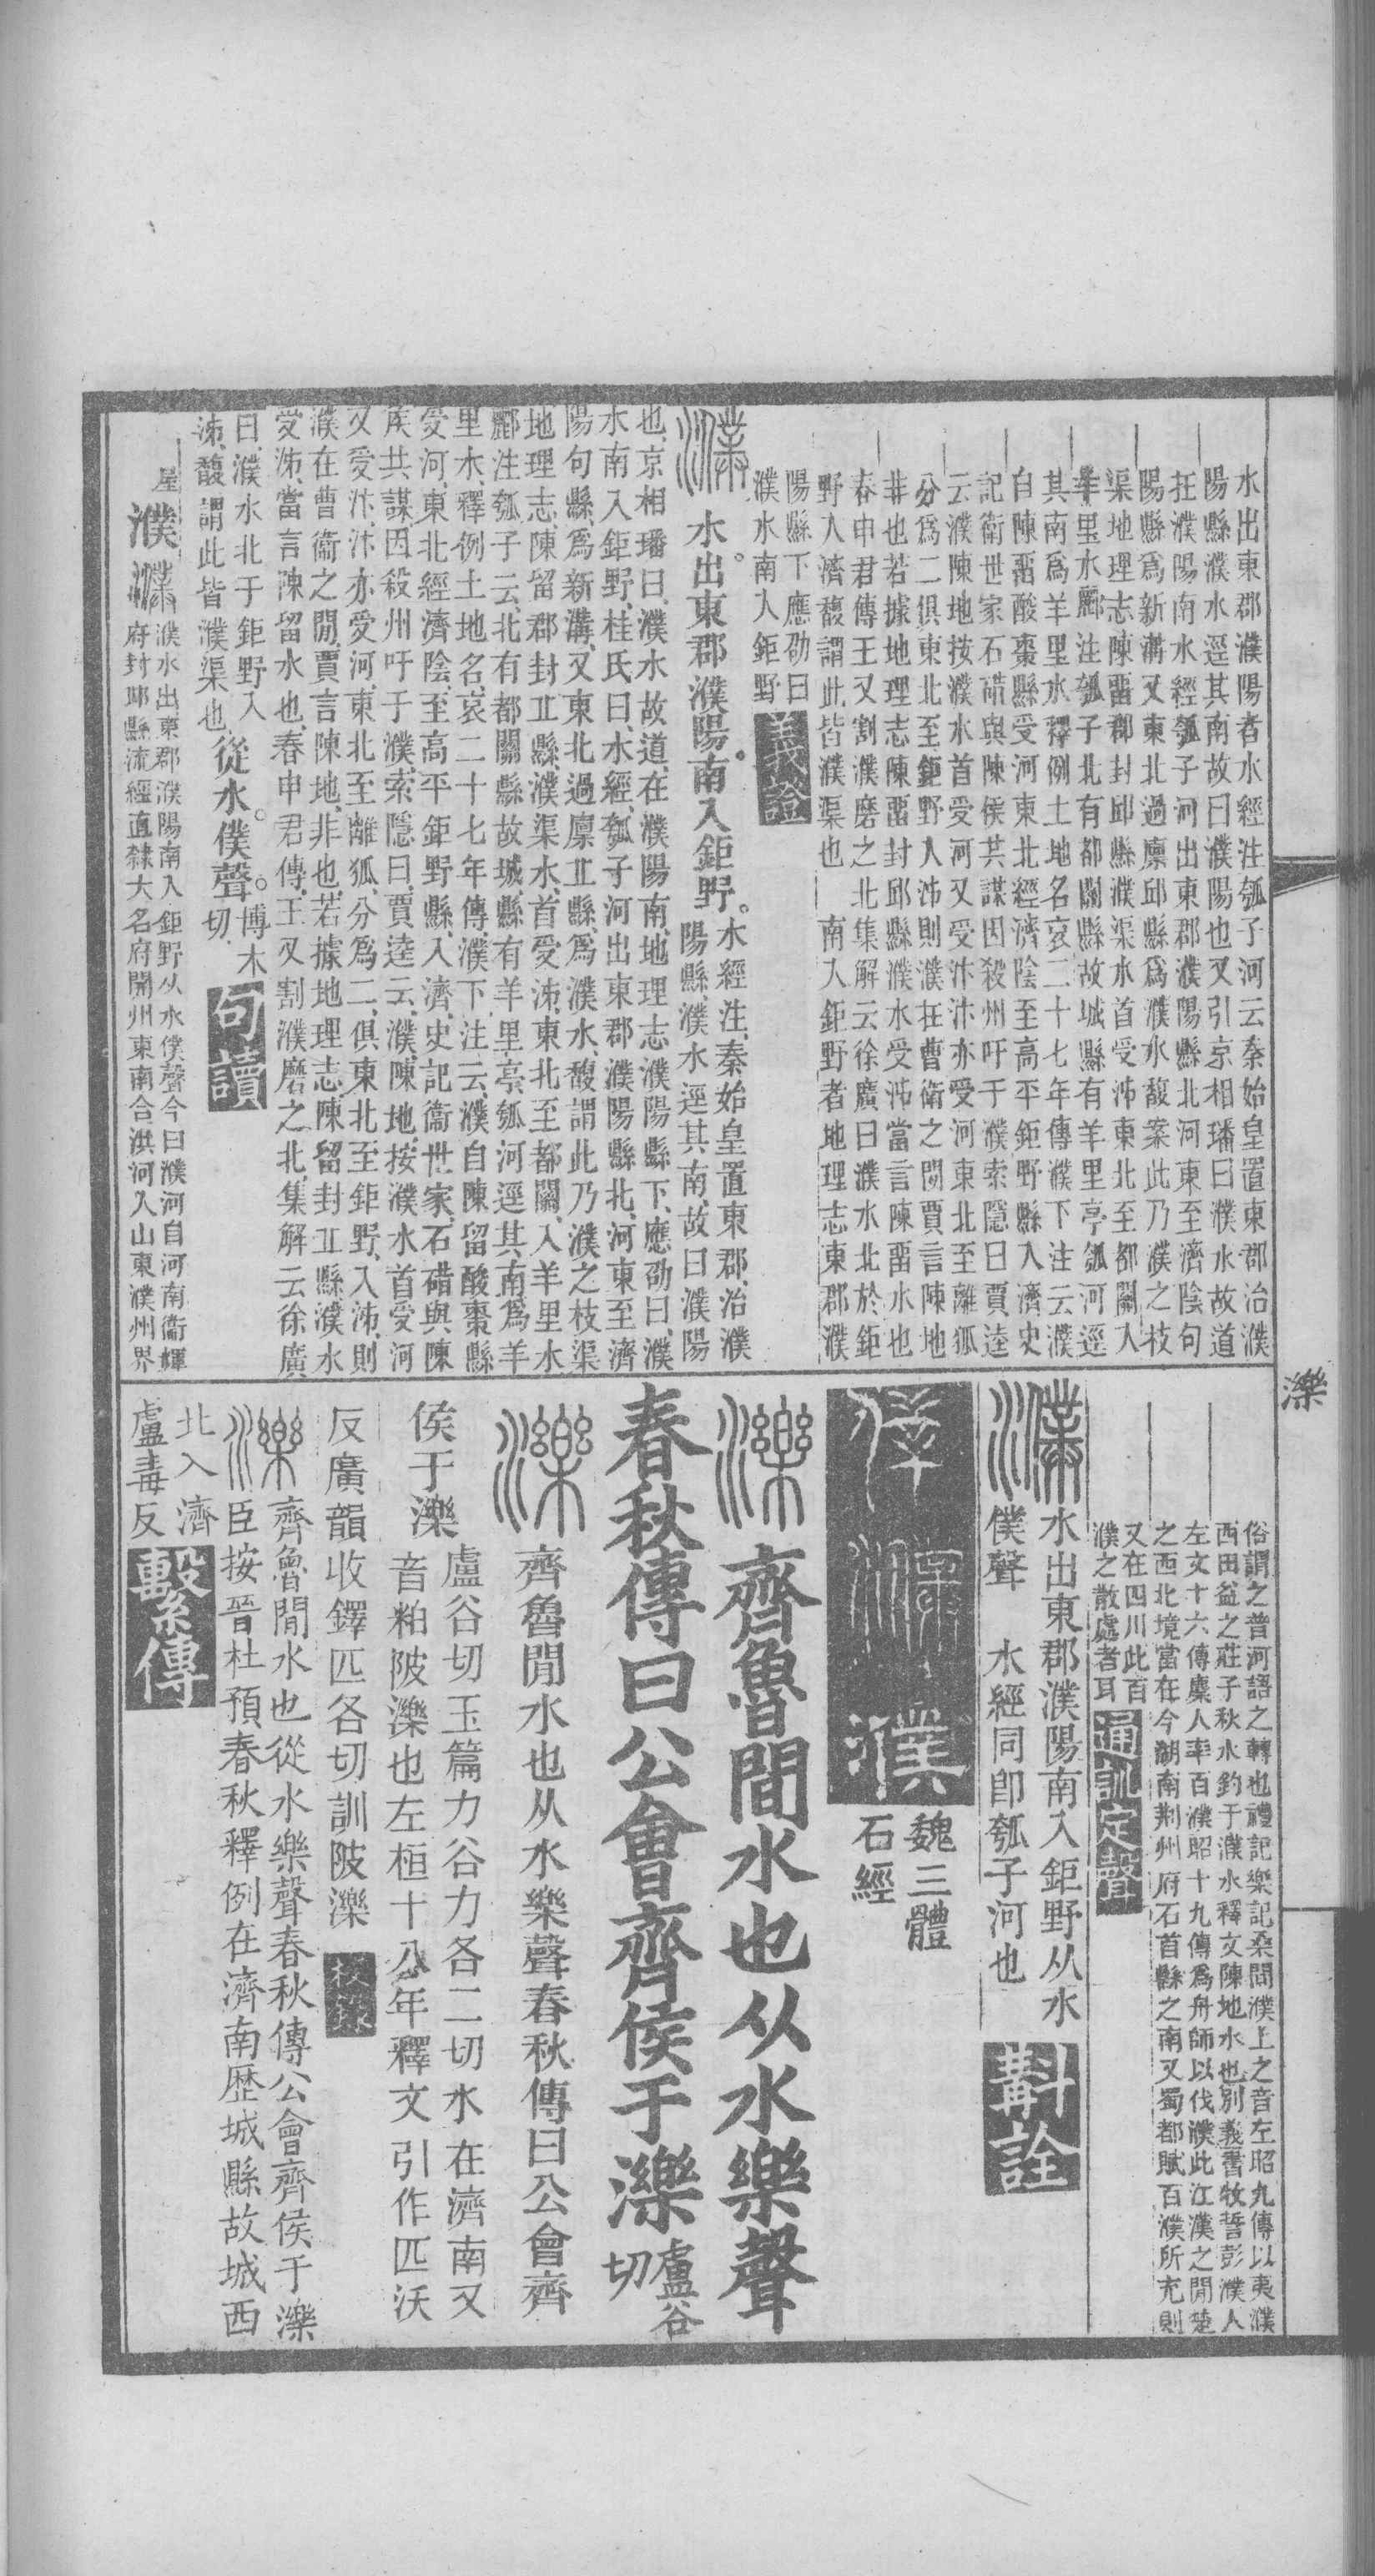 水出東郡濮陽者水經注瓠子河云秦始皇置東郡治濮
陽縣濮水逕其南故曰濮陽也又引京相璠曰濮水故道
在濮陽南水經瓠子河出東郡濮陽縣北河東至濟陰句
陽縣爲新溝又東北過廩邱縣爲濮水馥案此乃濮之枝
渠地理志陳畱郡封邱縣濮渠水首受泲東北至都關入
羊里水酈注瓠子北有都關縣故城縣有羊里亭瓠河逕
其南爲羊里水釋例土地名哀二十七年傳濮下注云濮
自陳畱酸棗縣受河東北經濟陰至高平鉅野縣入濟史
記衛世家石碏與陳侯共謀因殺州吁于濮索隱曰賈逵
云濮陳地按濮水首受河又受汴汴亦受河東北至離狐
分爲二俱東北至鉅野入泲則濮在曹衛之閒賈言陳地
非也若據地理志陳畱封邱縣濮水受泲當言陳畱水也
春申君傳王又割濮磨之北集解云徐廣曰濮水北於鉅
野入濟馥謂此皆濮渠也　南入鉅野者地理志東郡濮
陽縣下應劭曰
濮水南入鉅野 義證
濮 水出東郡濮陽。南入鉅野。水經注、秦始皇置東郡、治濮
陽縣、濮水逕其南、故曰濮陽
也、京相璠曰、濮水故道、在濮陽南、地理志濮陽縣下、應劭曰、濮
水南入鉅野、桂氏曰、水經、瓠子河出東郡濮陽縣北、河東至濟
陽句縣、爲新溝、又東北過廩丘縣、爲濮水、馥謂此乃濮之枝渠
地理志、陳留郡封丘縣、濮渠水、首受泲、東北至都關、入羊里水
酈注瓠子云、北有都關縣故城、縣有羊里亭、瓠河逕其南、爲羊
里水、釋例土地名、哀二十七年傳、濮下、注云、濮自陳留酸棗縣
受河、東北經濟陰、至高平鉅野縣、入濟、史記衞世家、石碏與陳
侯共謀、因殺州吁于濮、索隱曰、賈逵云、濮陳地、按濮水首受河
又受汴、汴亦受河、東北至離狐、分爲二、俱東北至鉅野、入泲、則
濮在曹衞之閒、賈言陳地、非也、若據地理志、陳留封丘縣、濮水
受泲、當言陳留水也、春申君傳、王又割濮磨之北、集解云徐廣
曰、濮水北于鉅野入
泲、馥謂此皆濮渠也、從水。僕聲。博木切 句讀
屋 濮 濮 濮水出東郡濮陽南入鉅野从水僕聲今曰濮河自河南衞輝
府封邱縣流經直隸大名府開州東南合洪河入山東濮州界
濼
俗謂之普河語之轉也禮記樂記桑間濮上之音左昭九傳以夷濮
西田益之莊子秋水釣于濮水釋文陳地水也別義書牧誓彭濮人
左文十六傳麇人率百濮昭十九傳爲舟師以伐濮此江漢之閒楚
之西北境當在今湖南荆州府石首縣之南又蜀都賦百濮所充則
又在四川此百
濮之散處者耳 通訓定聲
濮 水出東郡濮陽南入鉅野从水
僕聲　水經同卽瓠子河也 斠詮
濮 濮 魏三體
石經
濼 齊魯間水也从水樂聲
春秋傳曰公會齊侯于濼 盧谷切
濼 齊魯閒水也从水樂聲春秋傳曰公會齊
侯于濼 盧谷切玉篇力谷力各二切水在濟南又
音粕陂濼也左桓十八年釋文引作匹沃
反廣韻收鐸匹各切訓陂濼 校錄
濼 齊魯閒水也從水樂聲春秋傳公會齊侯于濼
臣按晉杜預春秋釋例在濟南歴城縣故城西
北入濟
盧毒反 繫傳